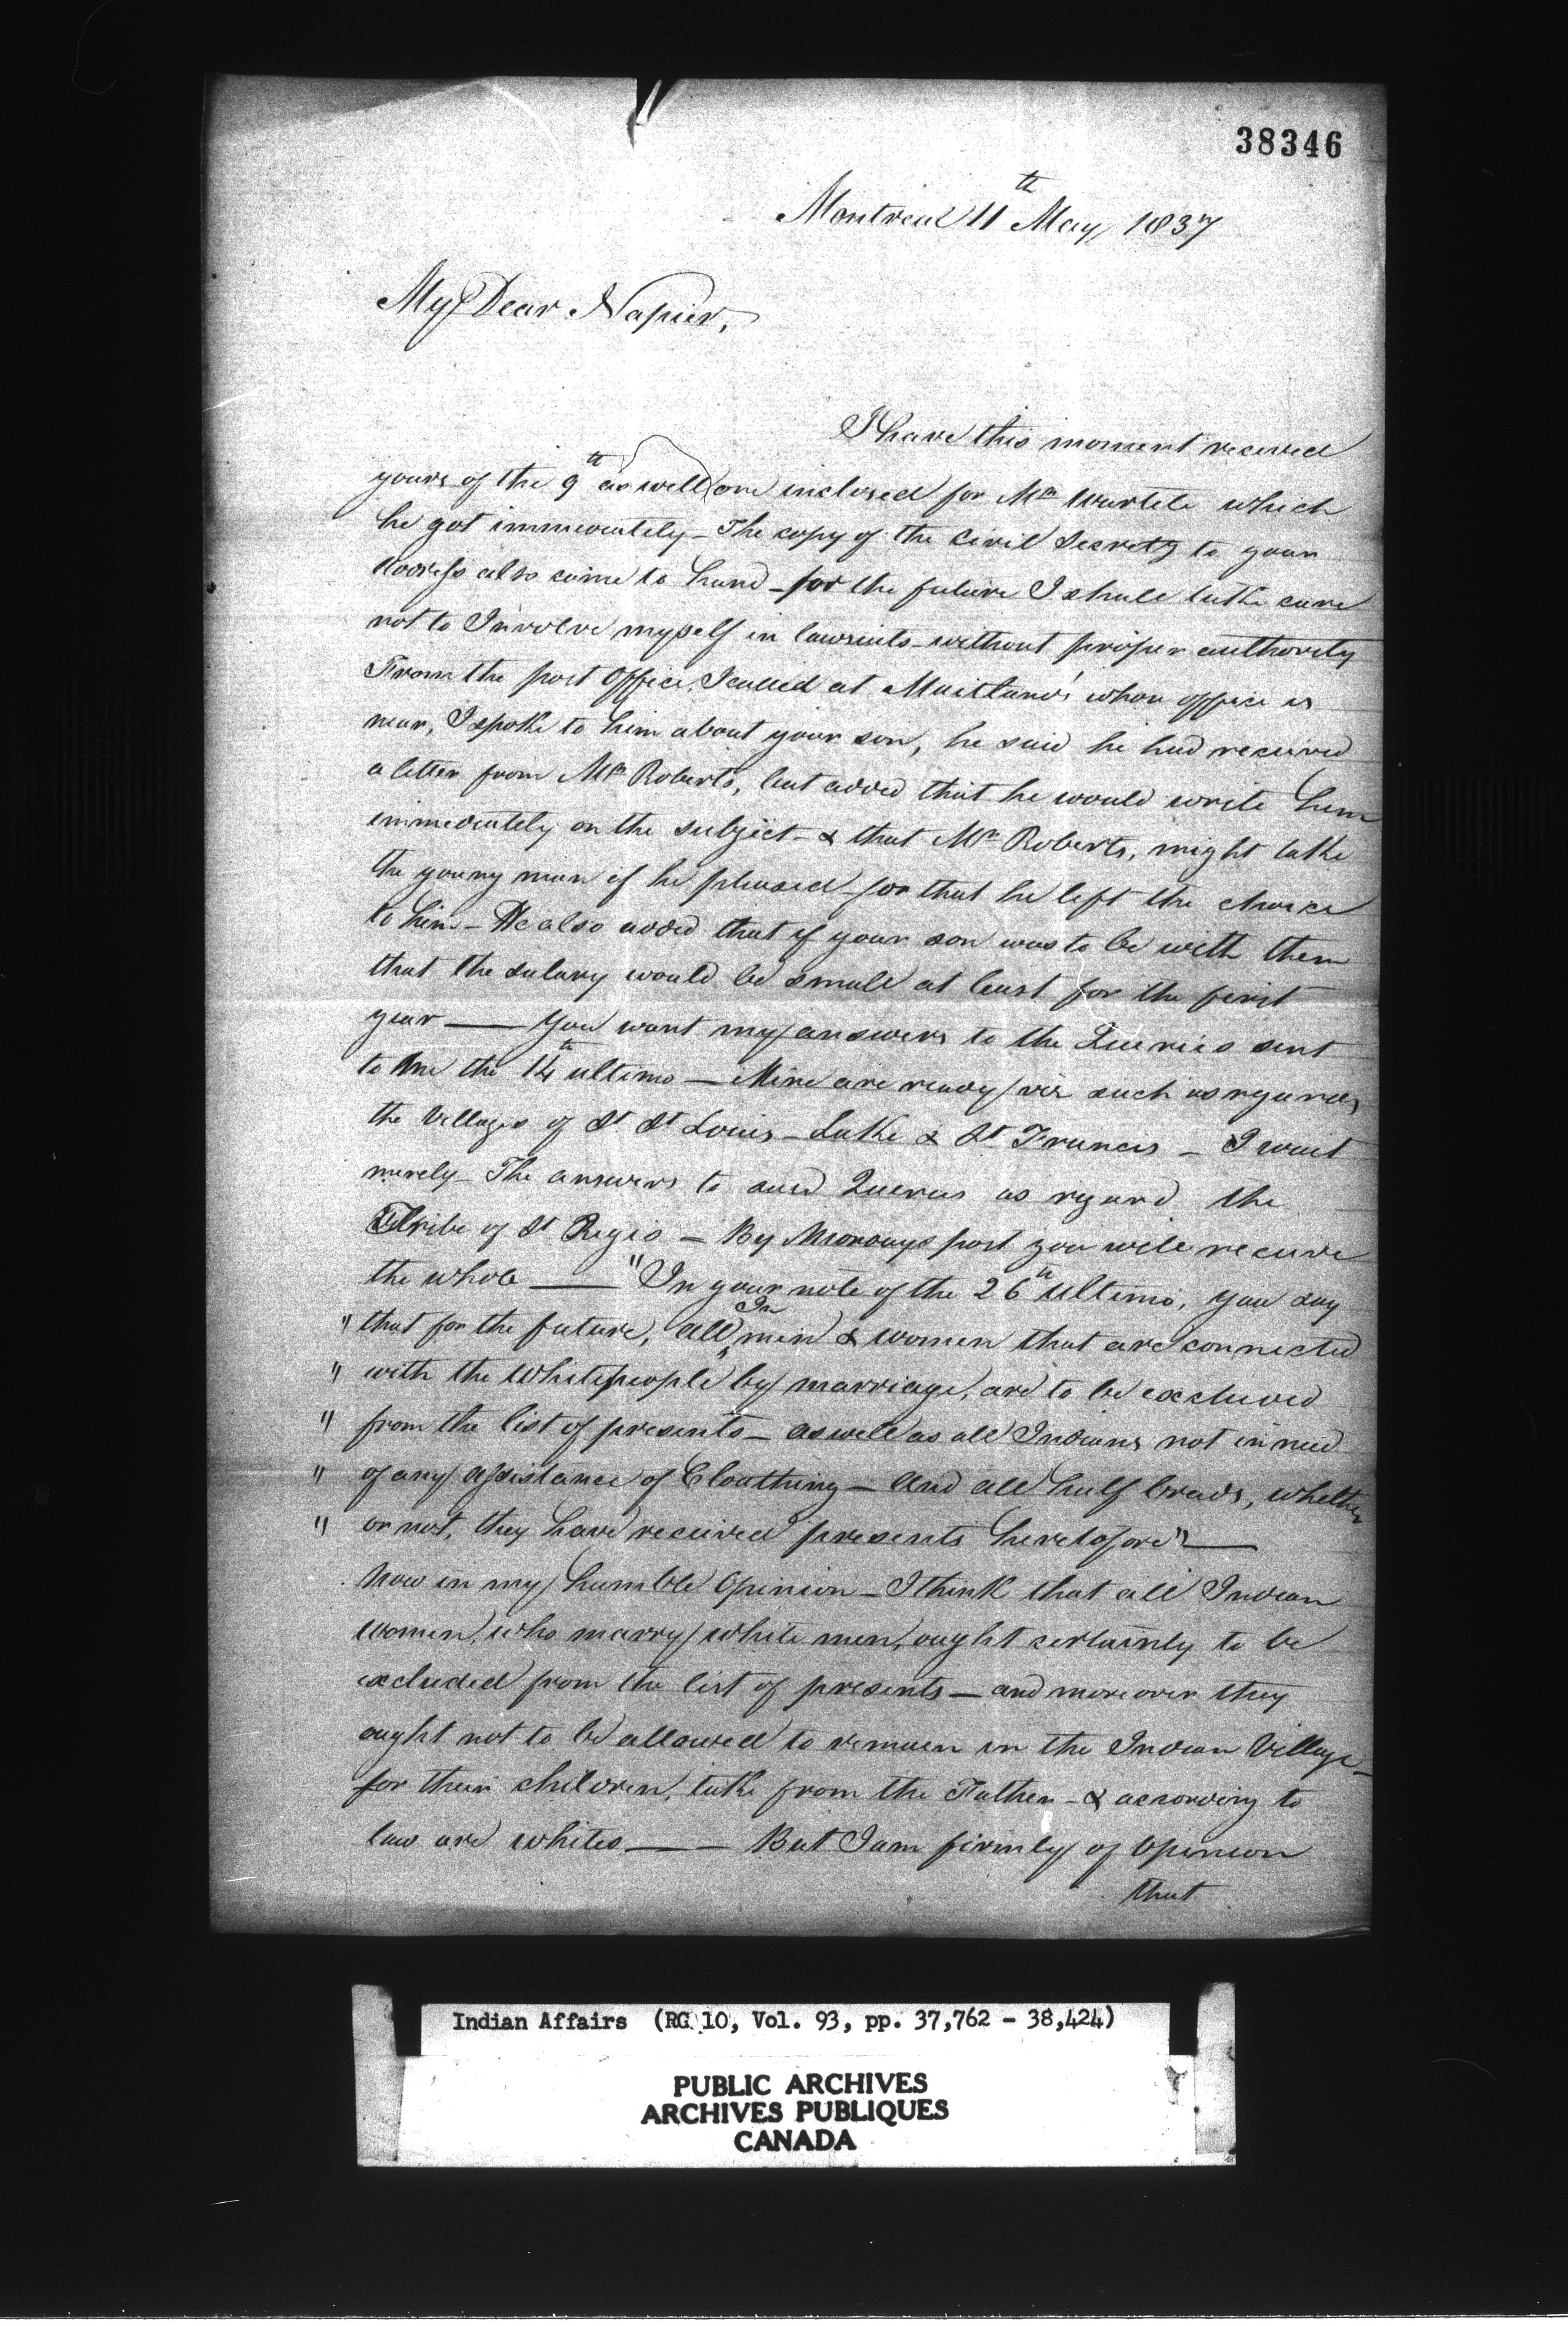 38346
Montreal 11th May, 1837
My Dear Napier,
I have this moment received
yours of the 9th as well one inclosed for Mr Wurtele which
he got immediately – The copy of the Civil Secretys to your
address also came to hand – for the future I shall take care
not to Involve myself in lawsuits – without proper authority
From the post Office, I called at Maitland's whose office is
near, I spoke to him about your son, he said he had received
a letter from Mr Roberts, but added that he would write him
immediately on the subject – & that Mr Roberts, might take
the young man if he pleased – for that he left the choice
to him – He also added that if your son was to be with them
that the salary would be small at least for the first
year — You want my answers to the Queries sent
to me the 14th ultimo — Mine are ready viz such as regards
the Villages of St St Louis – Lake & St Francis – I wait
merely – The answers to said Queries as regard the
Tribe of St Regis – By Moronys post you will receive
the whole — "In your note of the 26th Ultimo, you say
" that for the future, all In men & women that are connected
" with the White people by marriage, are to be excluded
" from the list of presents – as well as all Indians not in need
" of any assistance of Cloathing – And all half breads, whether
" or not, they have received presents heretofore" —
Now in my humble Opinion – I think that all Indian
women, who marry white men, ought certainly to be
excluded from the list of presents – and moreover they
ought not to be allowed to remain in the Indian Village –
for their children, take from the Father – & according to
law are whites — — But I am firmly of Opinion
that
Indian Affairs (RG 10, Vol. 93, pp. 37,762 - 38,424)
PUBLIC ARCHIVES
ARCHIVES PUBLIQUES
CANADA